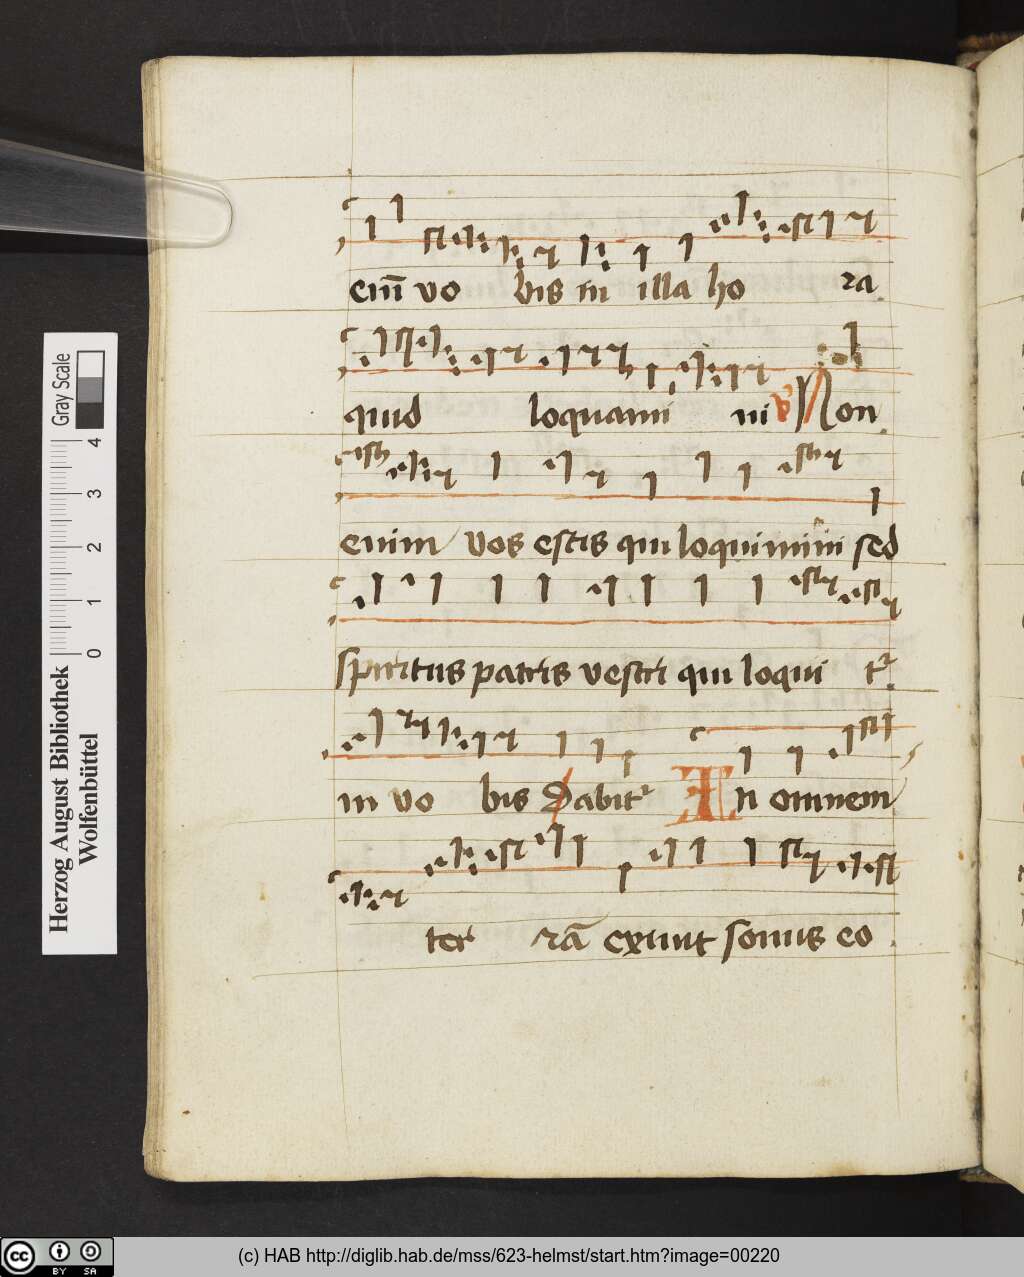 eni̅ vo bis in illa ho ra
quid loquami ni ℣ Non
enim vos estis qui loquimini sed
spiritus patris vestri qui loqui tᷣ
in vo bis Dabitᷣ In omnem
ter ra̅ exiuit sonus eo
Herzog August Bibliothek
Wolfenbüttel
Gray Scale
0 1 2 3 4
cc BY SA
(c) HAB http://diglib.hab.de/mss/623-helmst/start.htm?image=00220